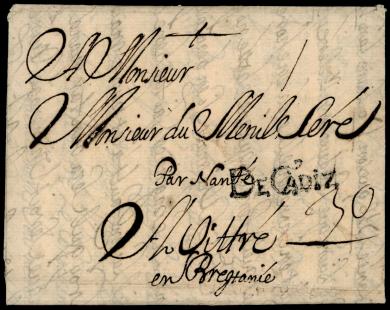 A Monsieur
Monsieur du Menils Seré
Par Nante
DE CADIZ
A Vittré 30
en Bregtanie